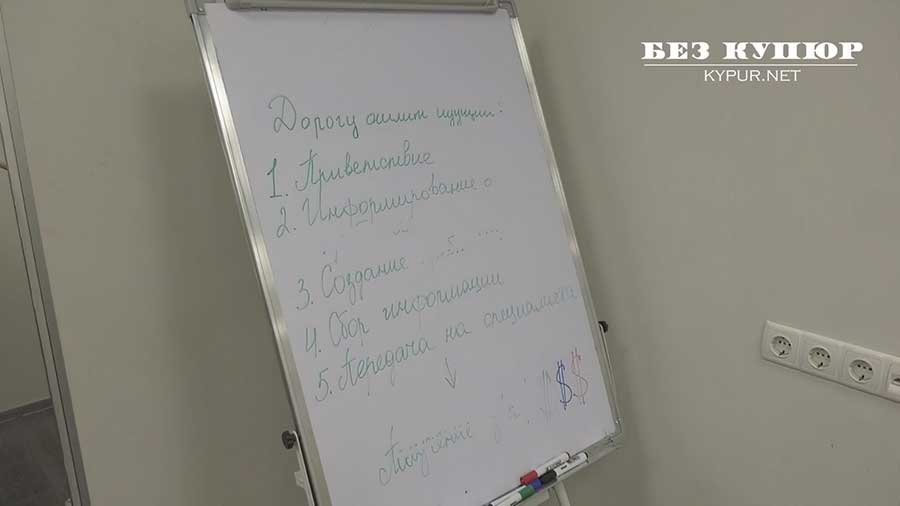 БЕЗ КУПЮР
KYPUR.NET
Дорогу осилит идущий:
1. Приветствие
2. Информирование о
3. Создание
4. Сбор информации
5. Передача на специалиста
↓
$ $ $